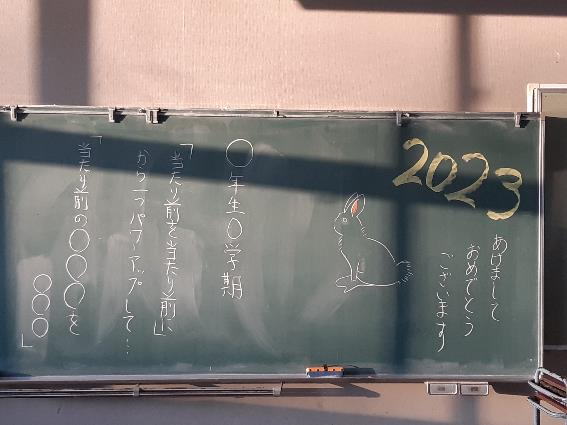 2023
あけまして
おめでとう
ございます
○年生○学期
「当たり前を当たり前に」
から一つパワーアップして…
「当たり前の○○○を
○○○」